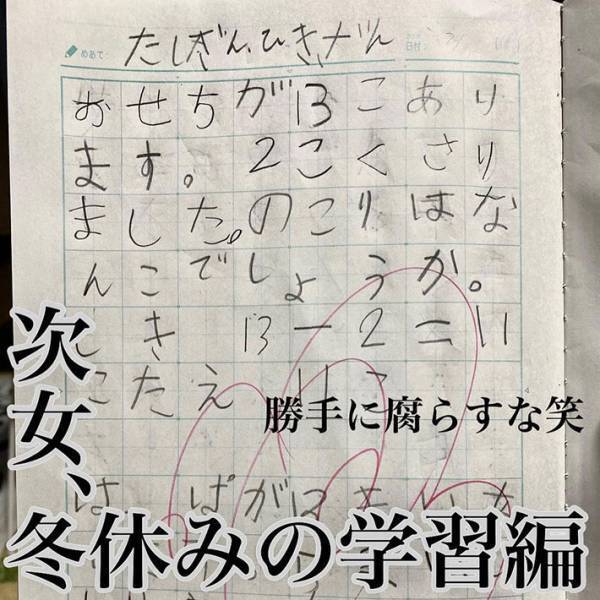 めあて
たしざん、ひきざん
日付
おせちが13こあり
ます。2こくさり
ました。のこりはな
んこでしょうか。
しき 13-2=11
こたえ 11こ
勝手に腐らすな笑
次女、
冬休みの学習編